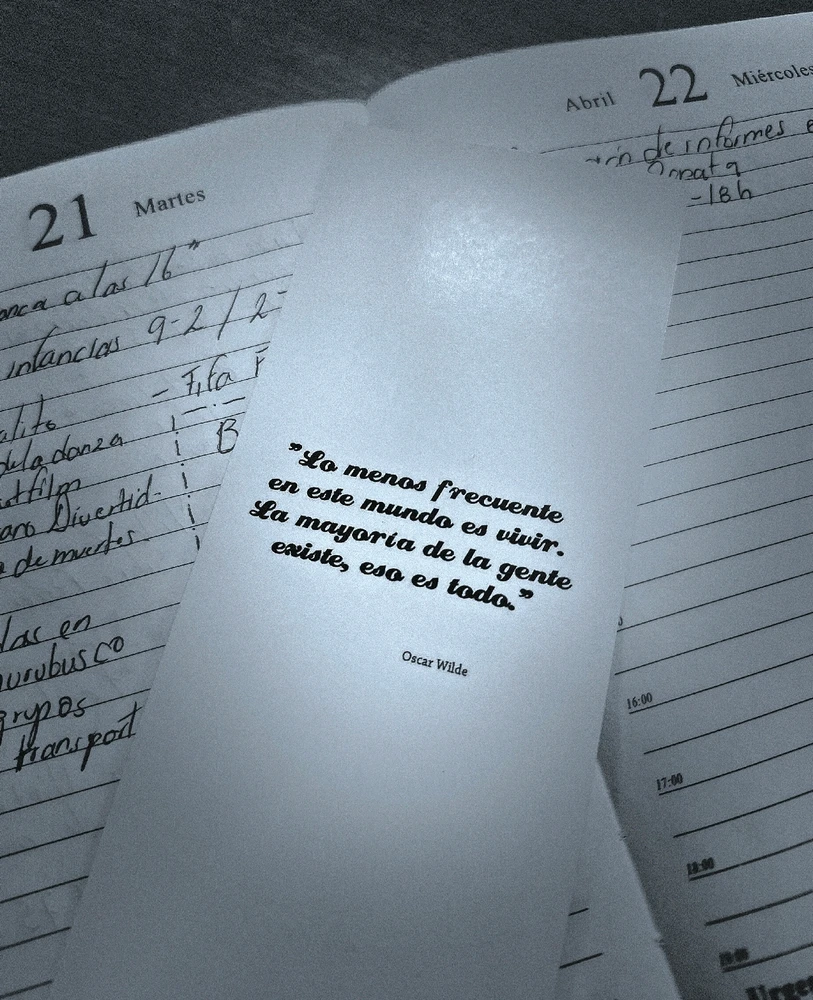 21 Martes
a las 16"
infancias 9-2 / 2-
- Fifa F
B
de la danza
film
Divertid-
de muertes.
las en
urubusco
grupos
transport
Abril 22 Miércoles
de informes e
-18 h
"Lo menos frecuente
en este mundo es vivir.
La mayoría de la gente
existe, eso es todo."
Oscar Wilde
16:00
17:00
18:00
19:00